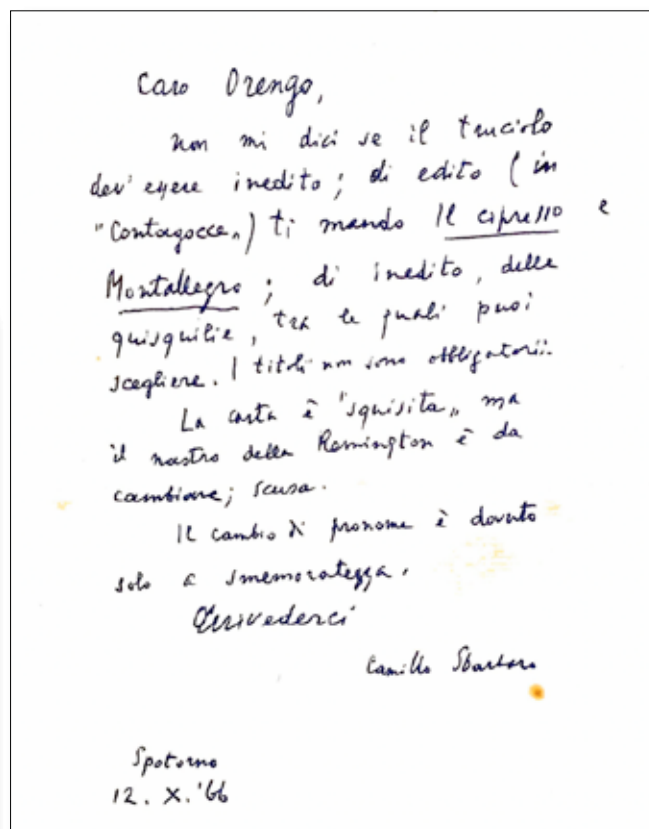 Caro Orengo,
non mi dici se il truciolo
dev'essere inedito; di edito (in
"Contagocce„) ti mando Il cipresso e
Montallegro; di inedito, delle
quisquilie, tra le quali puoi
scegliere. I titoli non sono obbligatorii.
La carta è "squisita„ ma
il nastro della Remington è da
cambiare; scusa.
Il cambio di pronome è dovuto
solo a smemoratezza.
Arrivederci
Camillo Sbarbaro
Spotorno
12. X. '66